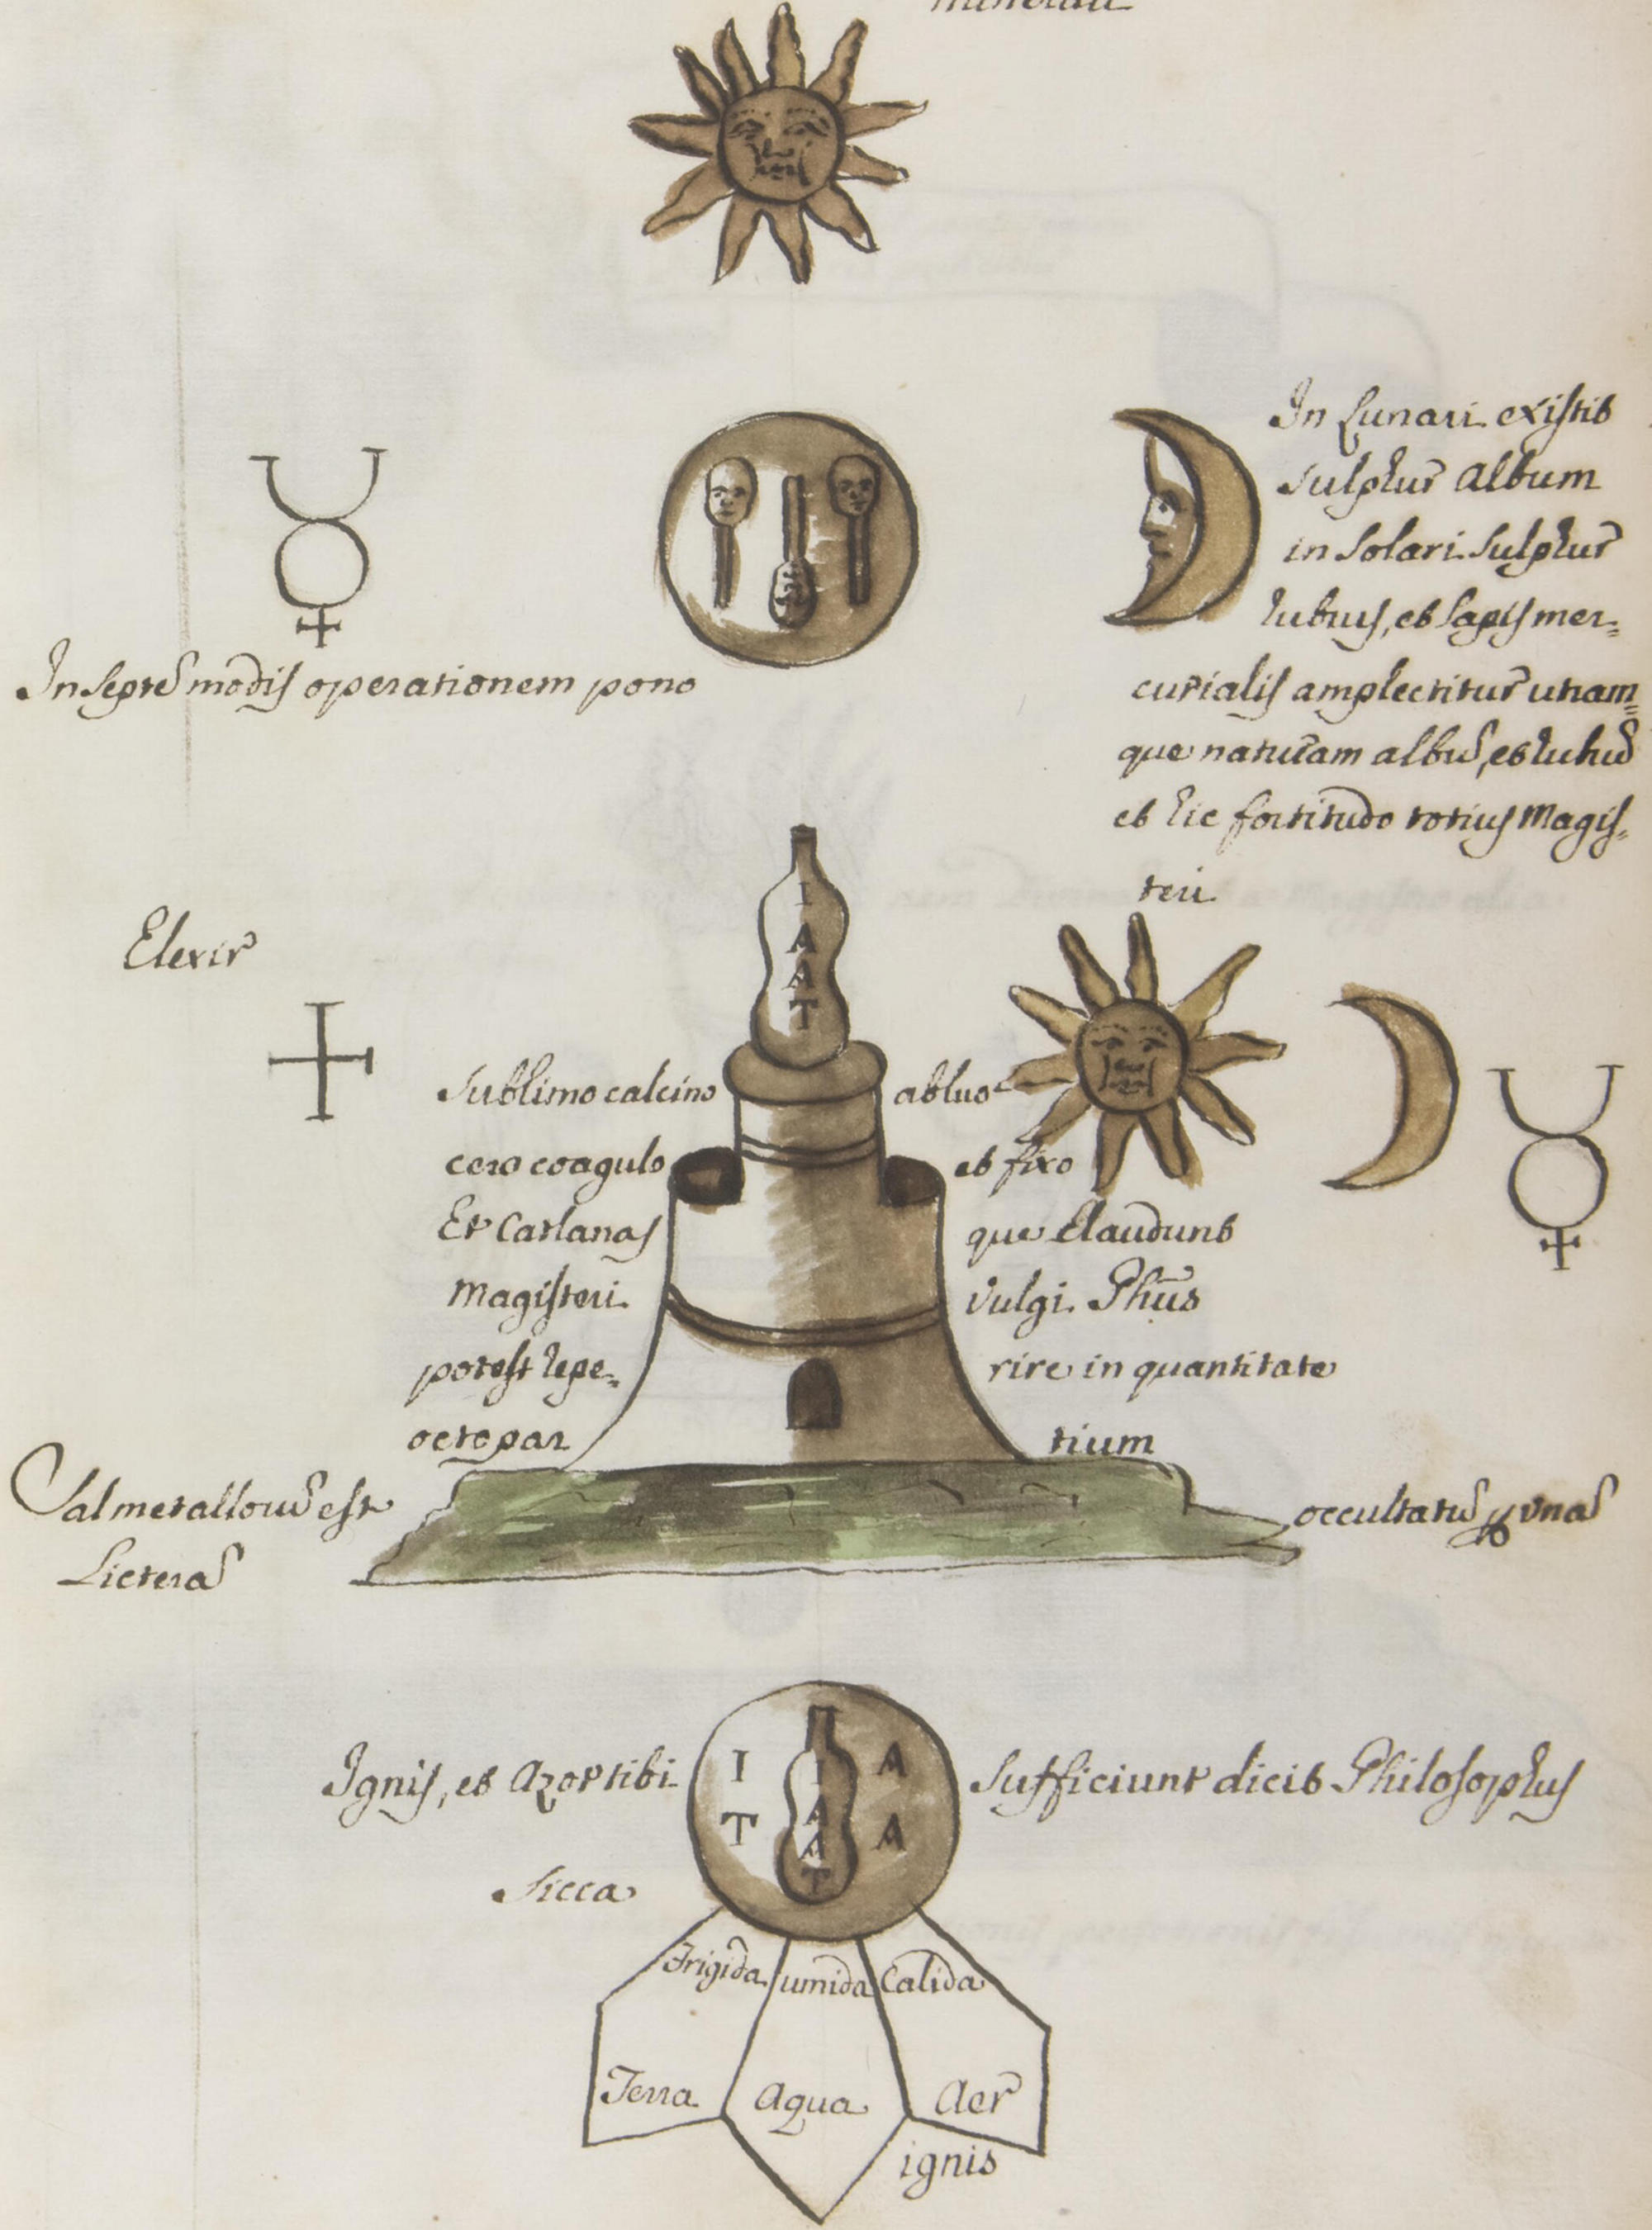 In Lunari existit
sulphur album
in Solari sulphur
rubius, et lapis mer=
curialis amplectitur utram=
que naturam albũ, et rubũ
et hic fortitudo totius Magis=
terii
In septẽ modis operationem pono
Elexir
I
A
A
T
Sublimo calcino abluo
cero coagulo et fixo
Et Catlanas que Claudunt
Magisteri vulgi. Phũs
potest repe= rire in quantitate
octo par tium
Sal metallorũ est occultatũ
Litterã
Ignis, et Azot tibi sufficiunt dicit Philosophus
I I A
T A A
A
T
Sicca
Frigida umida Calida
Terra Aqua Aer
ignis